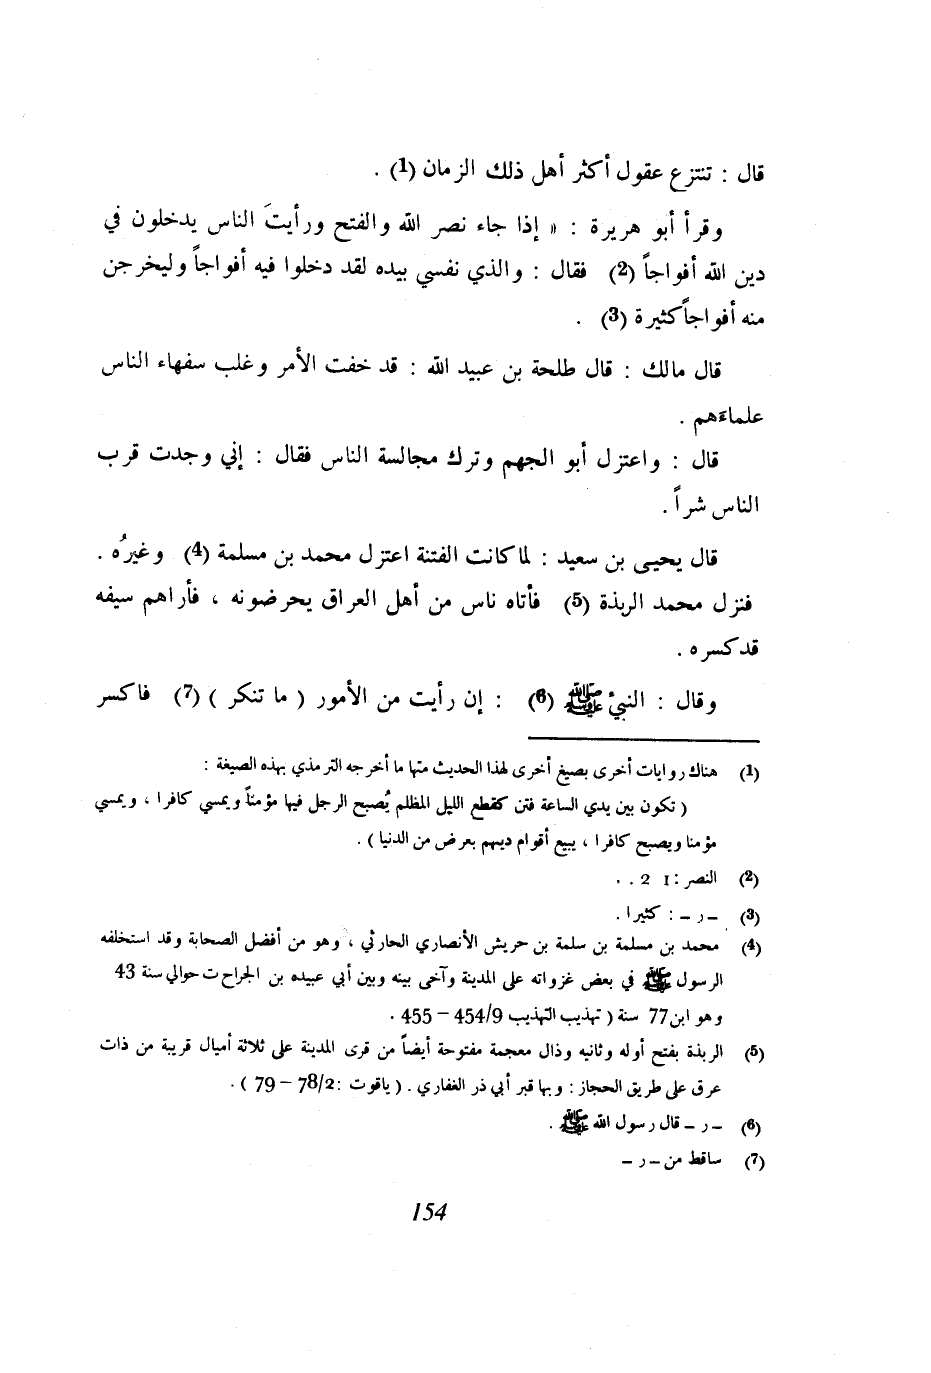 قال : تنتزع عقول أكثر أهل ذلك الزمان (1) .
وقرأ أبو هريرة : « إذا جاء نصر الله والفتح ورأيتَ الناس يدخلون في
دين الله أفواجاً (2) فقال : والذي نفسي بيده لقد دخلوا فيه أفواجاً وليخرجن
منه أفواجاً كثيرة (3) .
قال مالك : قال طلحة بن عبيد الله : قد خفت الأمر وغلب سفهاء الناس
علماءهم .
قال : واعتزل أبو الجهم وترك مجالسة الناس فقال : إني وجدت قرب
الناس شراً .
قال يحيى بن سعيد : لما كانت الفتنة اعتزل محمد بن مسلمة (4) وغيرُه .
فنزل محمد الربذة (5) فأتاه ناس من أهل العراق يحرضونه ، فأراهم سيفه
قد كسره .
وقال : النبيُ ﷺ (6) : إن رأيت من الأمور ( ما تنكر ) (7) فاكسر
(1) هناك روايات أخرى بصيغ أخرى لهذا الحديث منها ما أخرجه الترمذي بهذه الصيغة :
( تكون بين يدي الساعة فتن كقطع الليل المظلم يُصبح الرجل فيها مؤمناً ويمسي كافرا ، ويمسي
مؤمنا ويصبح كافرا ، يبيع أقوام دينهم بعرض من الدنيا ) .
(2) النصر : 1 2 . .
(3) – ر – : كثيرا .
(4) محمد بن مسلمة بن سلمة بن حريش الأنصاري الحارثي ، وهو من أفضل الصحابة وقد استخلفه
الرسول ﷺ في بعض غزواته على المدينة وآخى بينه وبين أبي عبيده بن الجراح ت حوالي سنة 43
وهو ابن 77 سنة ( تهذيب التهذيب 454/9 – 455 .
(5) الربذة بفتح أوله وثانيه وذال معجمة مفتوحة أيضاً من قرى المدينة على ثلاثة أميال قريبة من ذات
عرق على طريق الحجاز : وبها قبر أبي ذر الغفاري . ( ياقوت : 78/2 – 79 ) .
(6) – ر – قال رسول الله ﷺ .
(7) ساقط من – ر –
154